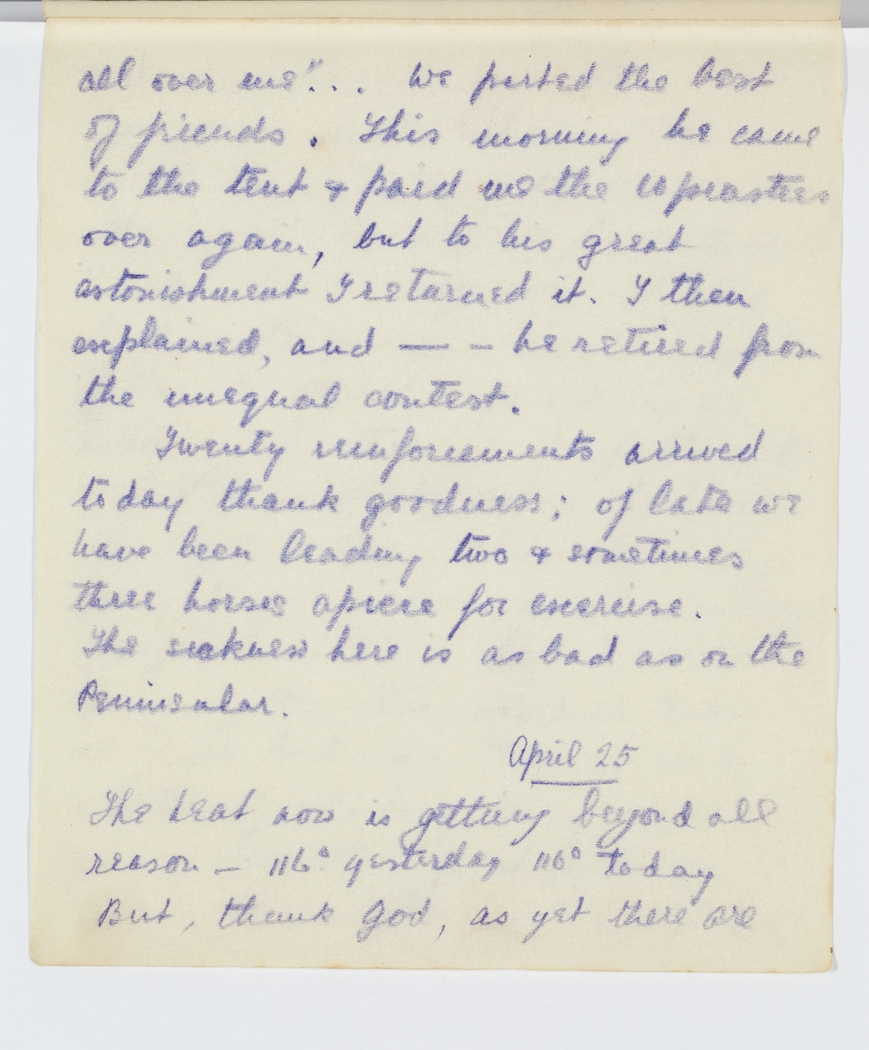 all over me"... We parted the best
of friends. This morning he came
to the tent & paid me the 10 piastres
over again, but to his great
astonishment I returned it. I then
explained, and — - he retired from
the unequal contest.
Twenty reinforcements arrived
today thank goodness; of late we
have been leading two & sometimes
three horses apiece for exercise.
The sickness here is as bad as on the
Peninsular.
April 25
The heat now is getting beyond all
reason — 116° yesterday 110° today
But, thank God, as yet there are